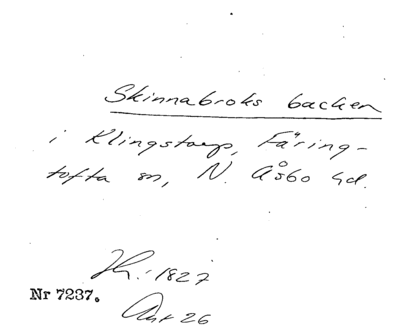 Skinnabroks backen
i Klingstorp, Färing-
tofta sn, N. Åsbo hd.
1827
Nr 7237.
26